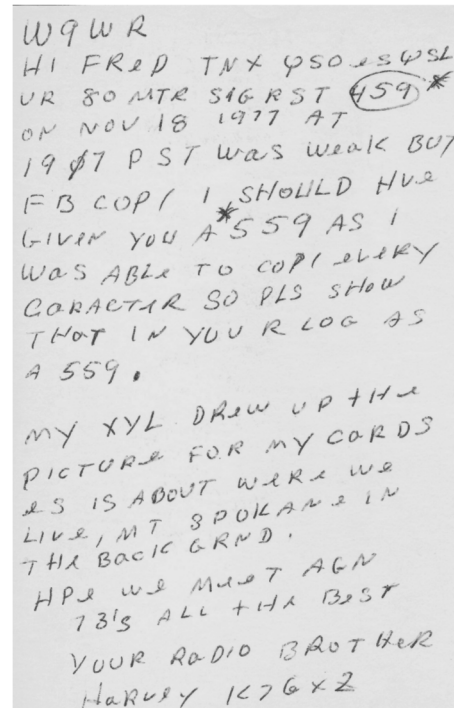 W9WR
HI FReD TNX QSO es QSL
UR 80 MTR SIG RST 459 *
ON NOV 18 1977 AT
19Ø7 PST WAS WeAK BUT
FB COPI I SHOULD HVe
GIVeN YOU A *559 AS I
WAS ABLe TO COPI eVeRY
CARACTeR SO PLS SHOW
THAT IN YOUR LOG AS
A 559.
MY XYL DReW UP tHe
PICTURe FOR MY CARDS
es IS ABOUT WeRe We
LIVe, MT SPOKANe IN
THe BACK GRND.
HPe We MeeT AGN
73's ALL tHe BeST
YOUR RADIO BROTHeR
HARVeY K7GXZ